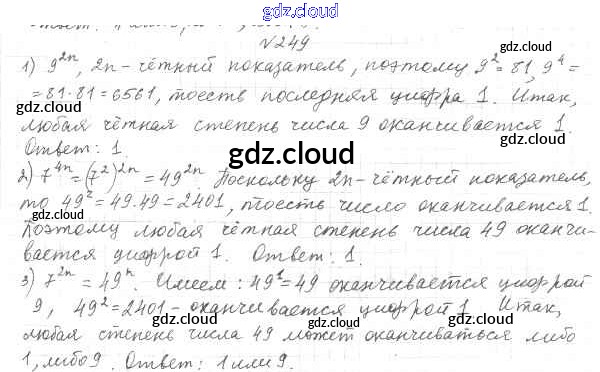 gdz.cloud
№249
1) 9^{2n}, 2n - чётный показатель, поэтому 9^2 = 81, 9^4 =
= 81·81 = 6561, тоесть последняя цифра 1. Итак,
любая чётная степень числа 9 оканчивается 1.
Ответ: 1.
2) 7^{4n} = (7^2)^{2n} = 49^{2n}. Поскольку 2n - чётный показатель,
то 49^2 = 49·49 = 2401, тоесть число оканчивается 1.
Поэтому любая чётная степень числа 49 оканчи-
вается цифрой 1. Ответ: 1.
3) 7^{2n} = 49^n. Имеем: 49^1 = 49 оканчивается цифрой
9, 49^2 = 2401 - оканчивается цифрой 1. Итак,
любая степень числа 49 может оканчиваться либо
1, либо 9. Ответ: 1 или 9.
gdz.cloud
gdz.cloud
gdz.cloud
gdz.cloud
gdz.cloud
gdz.cloud
gdz.cloud
gdz.cloud
gdz.cloud
gdz.cloud
gdz.cloud